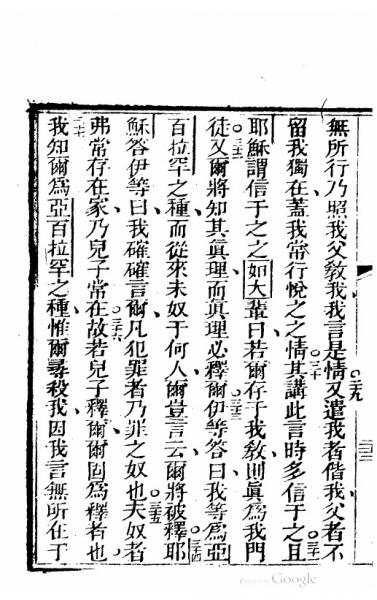 無所行乃照我父教我我言是情又遣我者偕我父者不
留我獨在蓋我常行悅之之情其講此言時多信于之且
耶穌謂信于之之如大輩曰若爾存于我教則眞爲我門
徒又爾將知其眞理而眞理必釋爾伊等答曰我等爲亞
百拉罕之種而從來未奴于何人爾豈言云爾將被釋耶
穌答伊等曰我確確言爾凡犯罪者乃罪之奴也夫奴者
弗常存在家乃兒子常在故若兒子釋爾爾固爲釋者也
我知爾爲亞百拉罕之種惟爾尋殺我因我言無所在于
Google